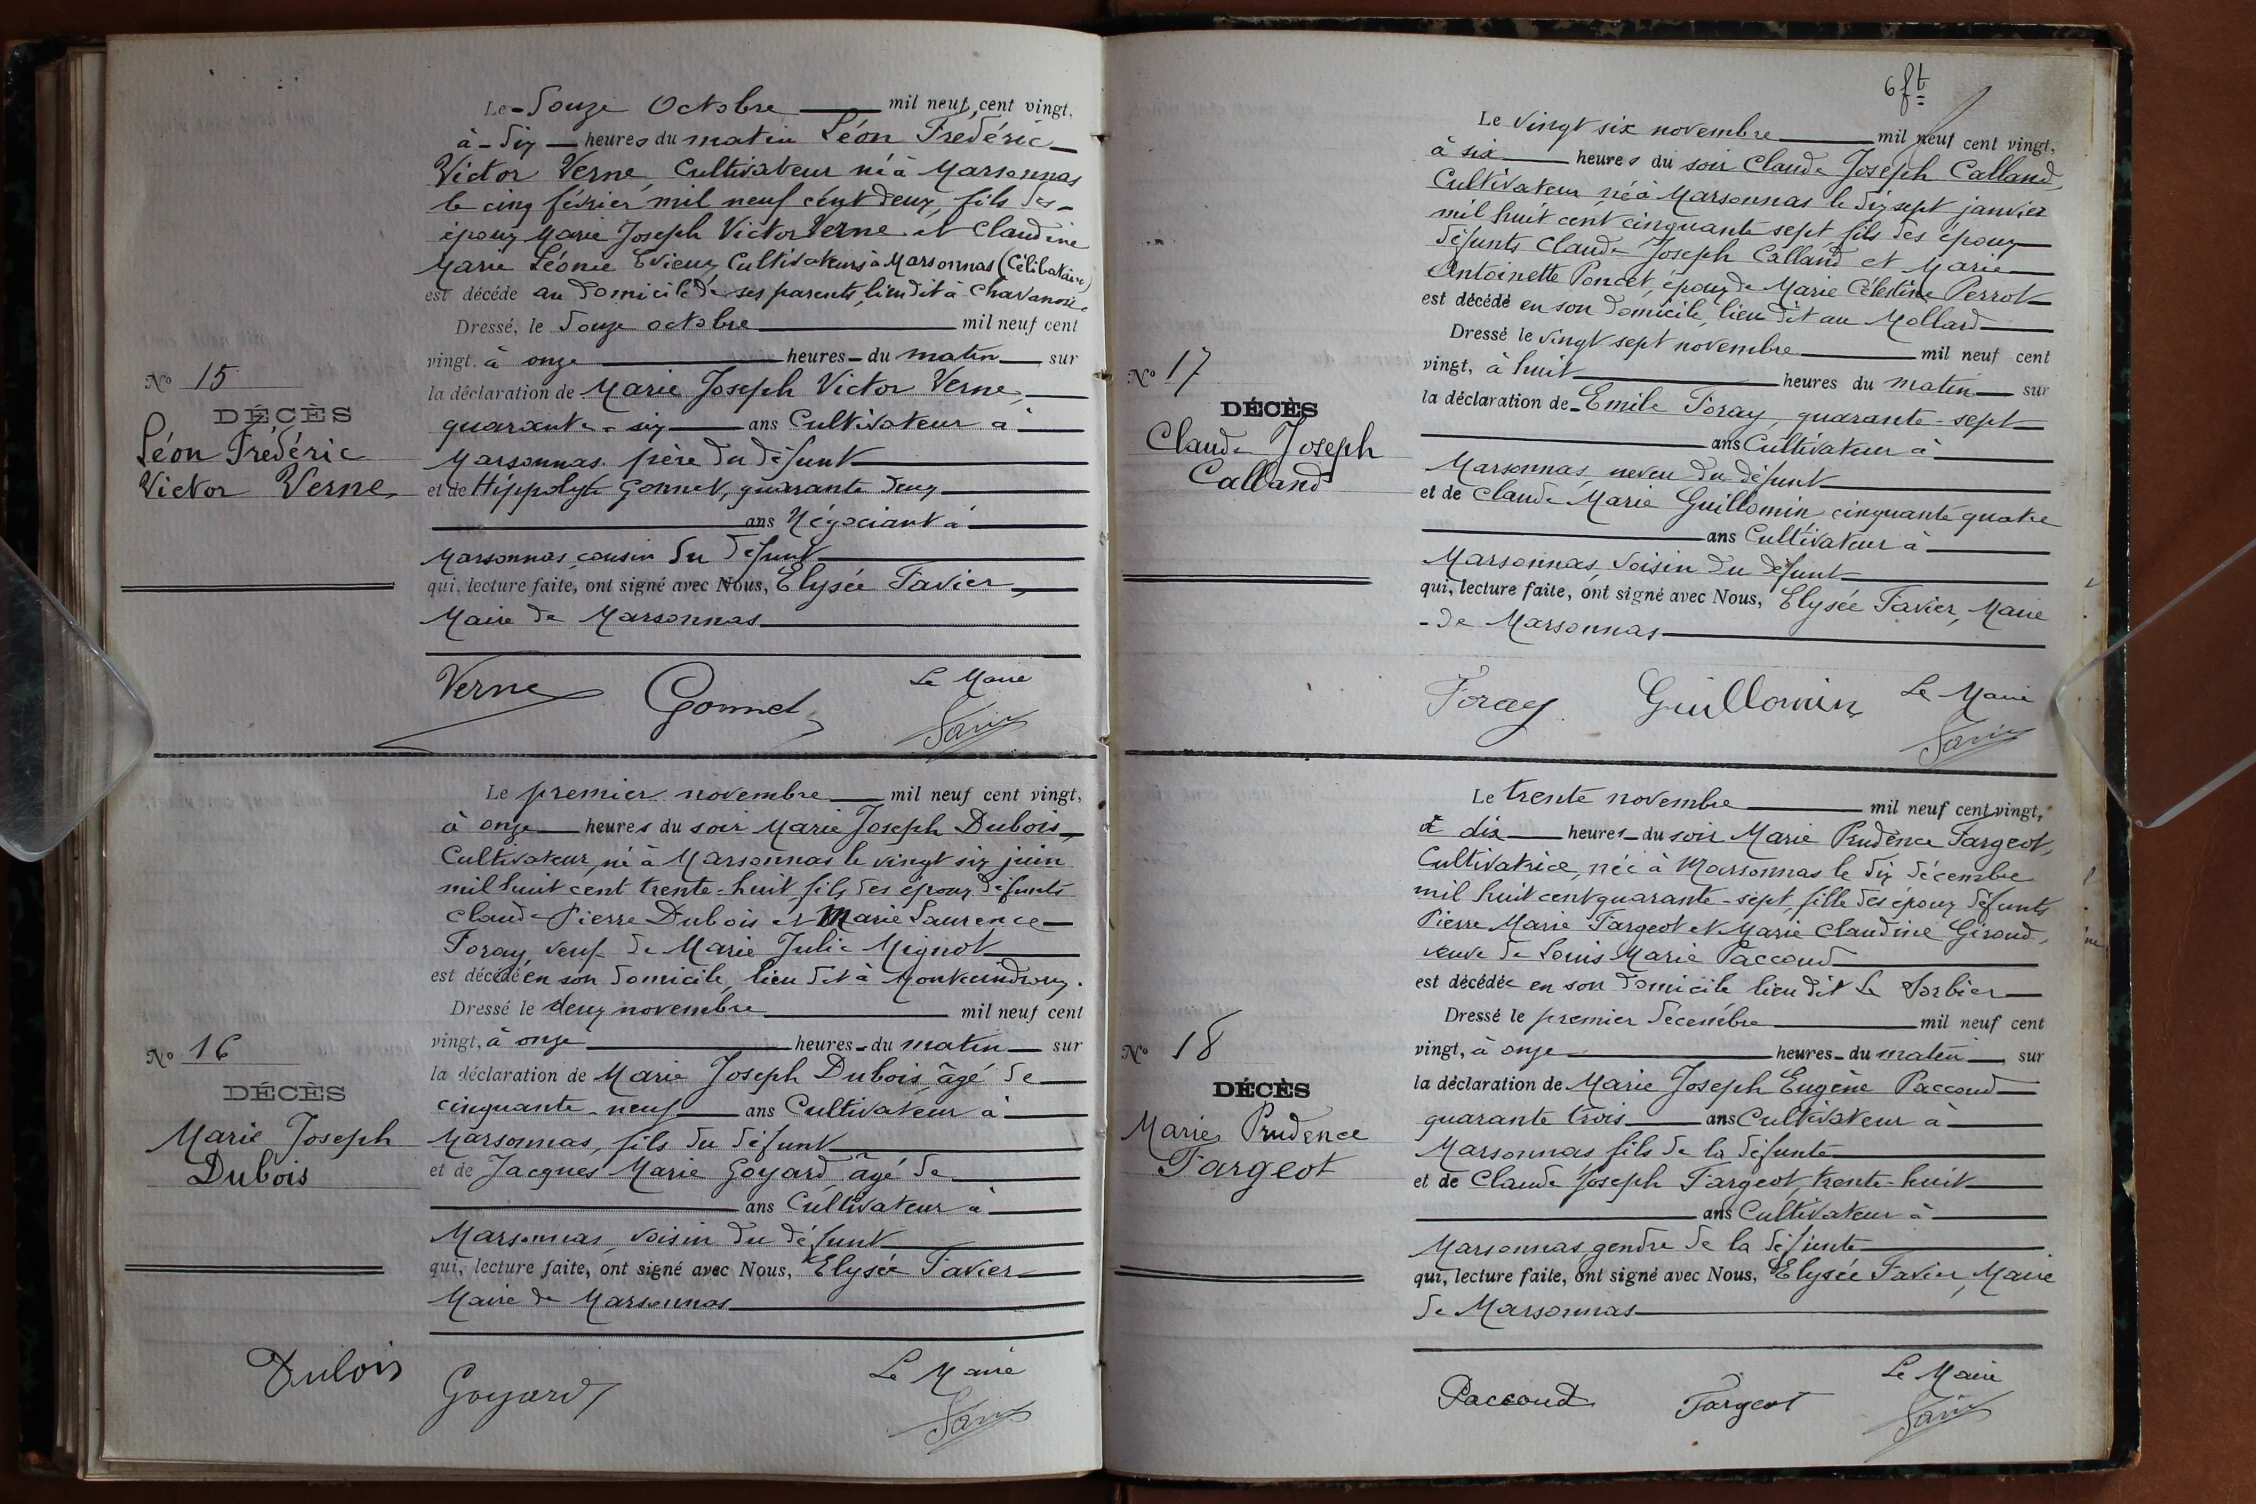 Le douze Octobre mil neuf cent vingt,
à dix heures du matin Léon Frédéric
Victor Verne, Cultivateur né à Marsonnas
le cinq février mil neuf cent deux, fils des
époux Marie Joseph Victor Verne et Claudine
Marie Léonie Evieux Cultivateurs à Marsonnas (Célibataire)
est décédé au domicile de ses parents, lieu dit à
Dressé, le douze octobre mil neuf cent
vingt, à onze heures du matin sur
No 15
la déclaration de Marie Joseph Victor Verne,
DÉCÈS
Léon Frédéric
Victor Verne
quarante-six ans Cultivateur à
Marsonnas, père du défunt
et de Hippolyte Gonnet, quarante deux
ans Négociant à
Marsonnas, cousin du défunt
qui, lecture faite, ont signé avec Nous, Elysée Favier,
Maire de Marsonnas
Verne Gonnet Le Maire
Favier
Le premier novembre mil neuf cent vingt,
à onze heures du soir Marie Joseph Dubois,
Cultivateur, né à Marsonnas le vingt six juin
mil huit cent trente-huit, fils des époux défunts
Claude Pierre Dubois et Marie Laurence
Foray, veuf de Marie Julie Mignot
est décédé en son domicile, lieu dit à
Dressé le deux novembre mil neuf cent
vingt, à onze heures du matin sur
No 16
la déclaration de Marie Joseph Dubois, âgé de
DÉCÈS
Marie Joseph
Dubois
cinquante-neuf ans Cultivateur à
Marsonnas, fils du défunt
et de Jacques Marie Goyard âgé de
ans Cultivateur à
Marsonnas, voisin du défunt
qui, lecture faite, ont signé avec Nous, Elysée Favier
Maire de Marsonnas
Dubois Goyard Le Maire
Favier
6 ft
Le vingt six novembre mil neuf cent vingt,
à six heures du soir Claude Joseph Calland,
Cultivateur, né à Marsonnas le dix sept janvier
mil huit cent cinquante sept fils des époux
défunts Claude Joseph Calland et Marie
Antoinette Poncet, époux de Marie Célestine Perrot
est décédé en son domicile, lieu dit au Mollard
Dressé le vingt sept novembre mil neuf cent
vingt, à huit heures du matin sur
No 17
la déclaration de Emile Foray, quarante-sept
DÉCÈS
Claude Joseph
Calland
ans Cultivateur à
Marsonnas, neveu du défunt
et de Claude Marie Guillomin cinquante quatre
ans Cultivateur à
Marsonnas, voisin du défunt
qui, lecture faite, ont signé avec Nous, Elysée Favier, Maire
de Marsonnas
Foray Guillomin Le Maire
Favier
Le trente novembre mil neuf cent vingt,
à dix heures du soir Marie Prudence Fargeot,
Cultivatrice, née à Marsonnas le dix décembre
mil huit cent quarante-sept, fille des époux défunts
Pierre Marie Fargeot et Marie Claudine Giroud,
veuve de Louis Marie Paccoud
est décédée en son domicile lieu dit Le Sorbier
Dressé le premier décembre mil neuf cent
vingt, à onze heures du matin sur
No 18
la déclaration de Marie Joseph Eugène Paccoud
DÉCÈS
Marie Prudence
Fargeot
quarante trois ans Cultivateur à
Marsonnas fils de la défunte
et de Claude Joseph Fargeot, trente-huit
ans Cultivateur à
Marsonnas, gendre de la défunte
qui, lecture faite, ont signé avec Nous, Elysée Favier, Maire
de Marsonnas
Paccoud Fargeot Le Maire
Favier